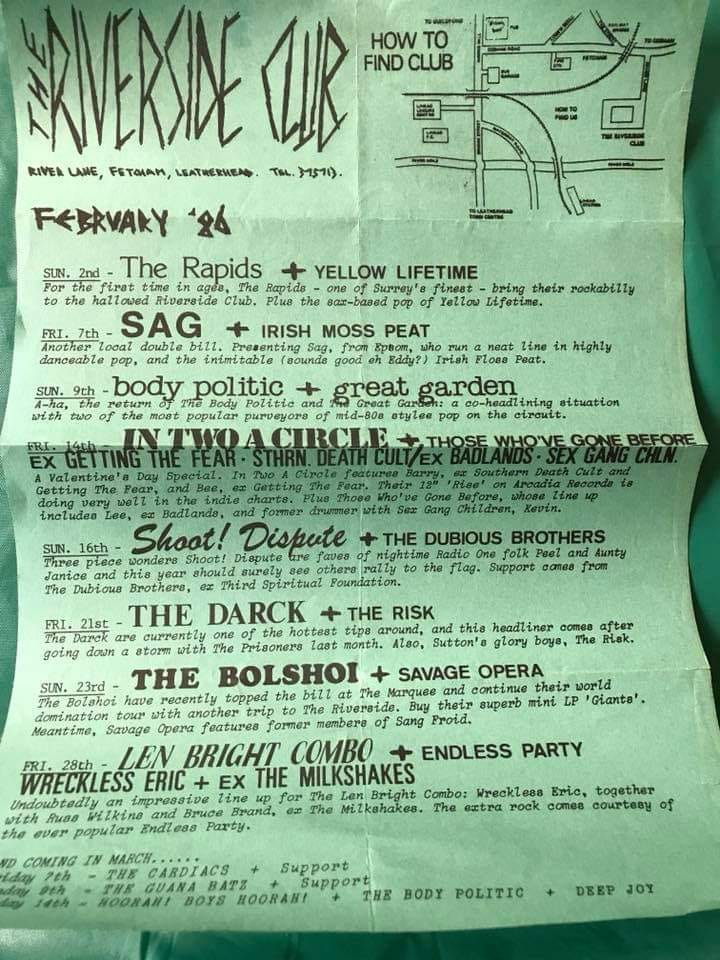 THE RIVERSIDE CLUB
RIVER LANE, FETCHAM, LEATHERHEAD. TEL. 375713.
HOW TO
FIND CLUB
TO GUILDFORD
PUB
COBHAM ROAD
FETCHAM
TO COBHAM
HOW TO
FIND US
THE RIVERSIDE
CLUB
RIVER MOLE
RIVER MOLE
TO LEATHERHEAD
TOWN CENTRE
FEBRUARY '86
SUN. 2nd - The Rapids + YELLOW LIFETIME
For the first time in ages, The Rapids - one of Surrey's finest - bring their rockabilly
to the hallowed Riverside Club. Plus the sax-based pop of Yellow Lifetime.
FRI. 7th - SAG + IRISH MOSS PEAT
Another local double bill. Presenting Sag, from Epsom, who run a neat line in highly
danceable pop, and the inimitable (sounds good eh Eddy?) Irish Floss Peat.
SUN. 9th - body politic + great garden
A-ha, the return of The Body Politic and The Great Garden: a co-headlining situation
with two of the most popular purveyors of mid-80s stylee pop on the circuit.
FRI. 14th - IN TWO A CIRCLE + THOSE WHO'VE GONE BEFORE
EX GETTING THE FEAR · STHRN. DEATH CULT/EX BADLANDS · SEX GANG CHLN.
A Valentine's Day Special. In Two A Circle features Barry, ex Southern Death Cult and
Getting The Fear, and Bee, ex Getting The Fear. Their 12" 'Rise' on Arcadia Records is
doing very well in the indie charts. Plus Those Who've Gone Before, whose line up
includes Lee, ex Badlands, and former drummer with Sex Gang Children, Kevin.
SUN. 16th - Shoot! Dispute + THE DUBIOUS BROTHERS
Three piece wonders Shoot! Dispute are faves of nightime Radio One folk Peel and Aunty
Janice and this year should surely see others rally to the flag. Support comes from
The Dubious Brothers, ex Third Spiritual Foundation.
FRI. 21st - THE DARCK + THE RISK
The Darck are currently one of the hottest tips around, and this headliner comes after
going down a storm with The Prisoners last month. Also, Sutton's glory boys, The Risk.
SUN. 23rd - THE BOLSHOI + SAVAGE OPERA
The Bolshoi have recently topped the bill at The Marquee and continue their world
domination tour with another trip to The Riverside. Buy their superb mini LP 'Giants'.
Meantime, Savage Opera features former members of Sang Froid.
FRI. 28th - LEN BRIGHT COMBO + ENDLESS PARTY
WRECKLESS ERIC + EX THE MILKSHAKES
Undoubtedly an impressive line up for The Len Bright Combo: Wreckless Eric, together
with Russ Wilkins and Bruce Brand, ex The Milkshakes. The extra rock comes courtesy of
the ever popular Endless Party.
ND COMING IN MARCH......
riday 7th - THE CARDIACS + Support
nday 9th - THE GUANA BATZ + Support
day 14th - HOORAH! BOYS HOORAH! + THE BODY POLITIC + DEEP JOY